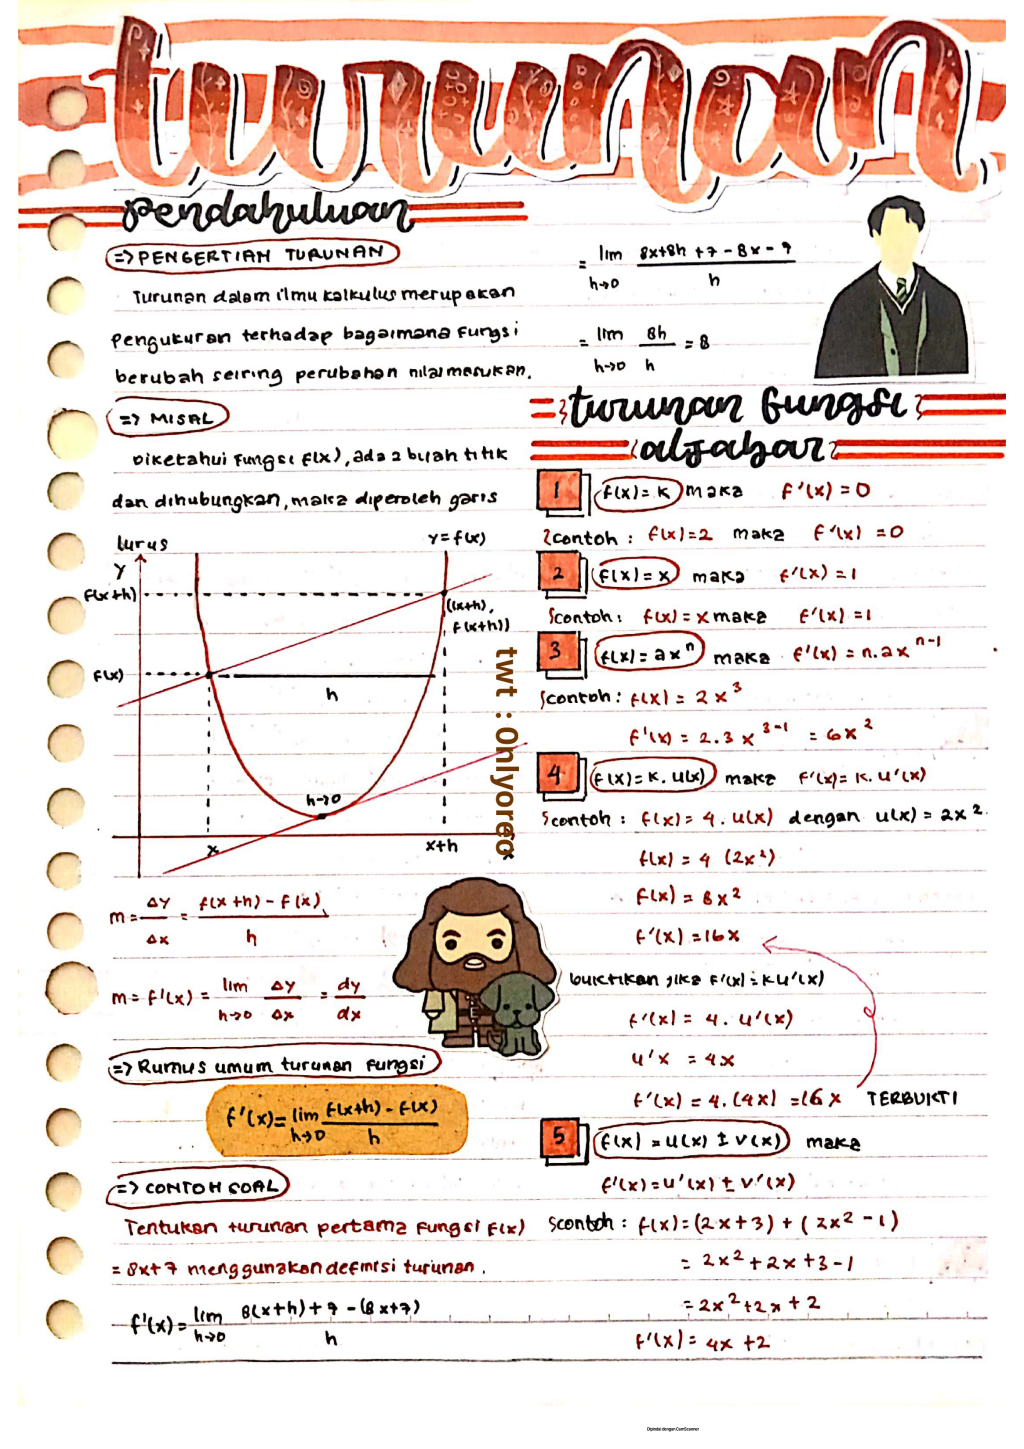 turunan
pendahuluan
=> PENGERTIAN TURUNAN
Turunan dalam ilmu kalkulus merupakan
pengukuran terhadap bagaimana fungsi
berubah seiring perubahan nilai masukan.
=> MISAL
Diketahui fungsi f(x), ada 2 buah titik
dan dihubungkan, maka diperoleh garis
lurus
y = f(x)
Y
f(x+h)
((x+h),
f(x+h))
f(x)
h
h→0
x
x+h
m = Δy/Δx = f(x+h) - f(x)/h
m = f'(x) = lim h→0 Δy/Δx = dy/dx
=> Rumus umum turunan fungsi
f'(x) = lim h→0 f(x+h) - f(x)/h
=> CONTOH SOAL
Tentukan turunan pertama fungsi f(x)
= 8x+7 menggunakan definisi turunan.
f'(x) = lim h→0 8(x+h)+7-(8x+7)/h
= lim h→0 8x+8h+7-8x-7/h
= lim h→0 8h/h = 8
turunan fungsi
aljabar
1 f(x) = k maka f'(x) = 0
contoh : f(x) = 2 maka f'(x) = 0
2 f(x) = x maka f'(x) = 1
contoh : f(x) = x maka f'(x) = 1
3 f(x) = ax^n maka f'(x) = n.ax^n-1
contoh : f(x) = 2x^3
f'(x) = 2.3x^3-1 = 6x^2
4 f(x) = k. u(x) maka f'(x) = k. u'(x)
contoh : f(x) = 4. u(x) dengan u(x) = 2x^2
f(x) = 4 (2x^2)
f(x) = 8x^2
f'(x) = 16x
buktikan jika f'(x) = k u'(x)
f'(x) = 4. u'(x)
u'x = 4x
f'(x) = 4. (4x) = 16x TERBUKTI
5 f(x) = u(x) ± v(x) maka
f'(x) = u'(x) ± v'(x)
contoh : f(x) = (2x+3) + (2x^2-1)
= 2x^2+2x+3-1
= 2x^2+2x+2
f'(x) = 4x+2
twt : Onlyoreo
Dipindai dengan CamScanner